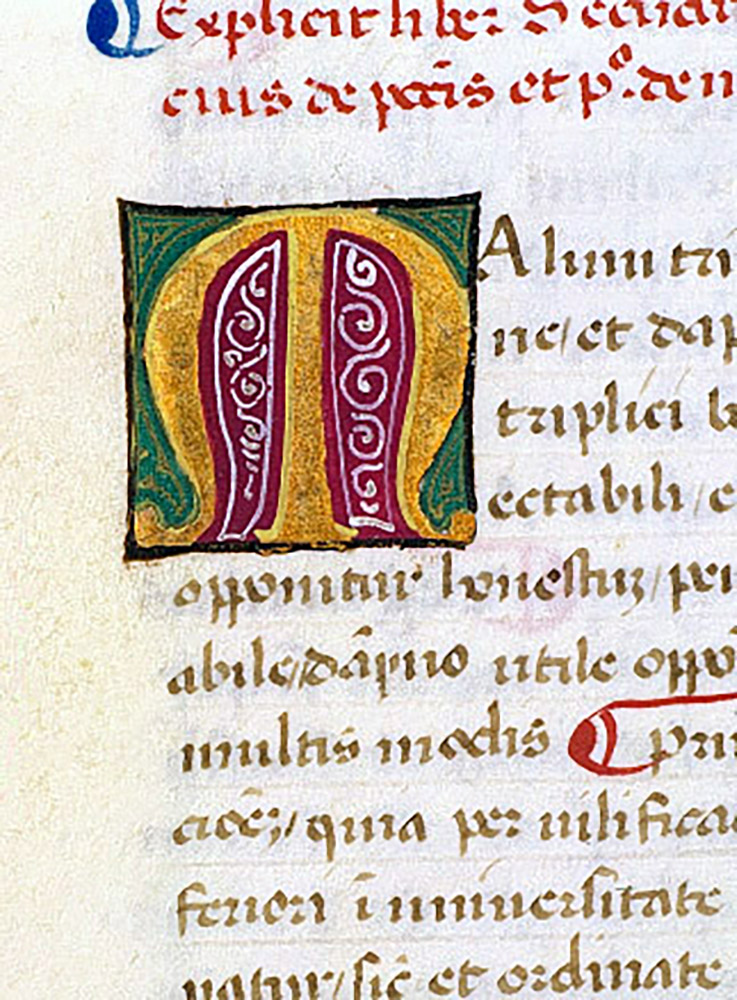 Explicit liber
cuis de pctis et po. de
M Alum tri
ne / et dap
triplici b
ectabili / e
opponitur honestuz / per
abile / dãpno utile oppo
multis modis pri
cioez / quia per uilifica
feriori ī uniuersitate
natur / sic et ordinate